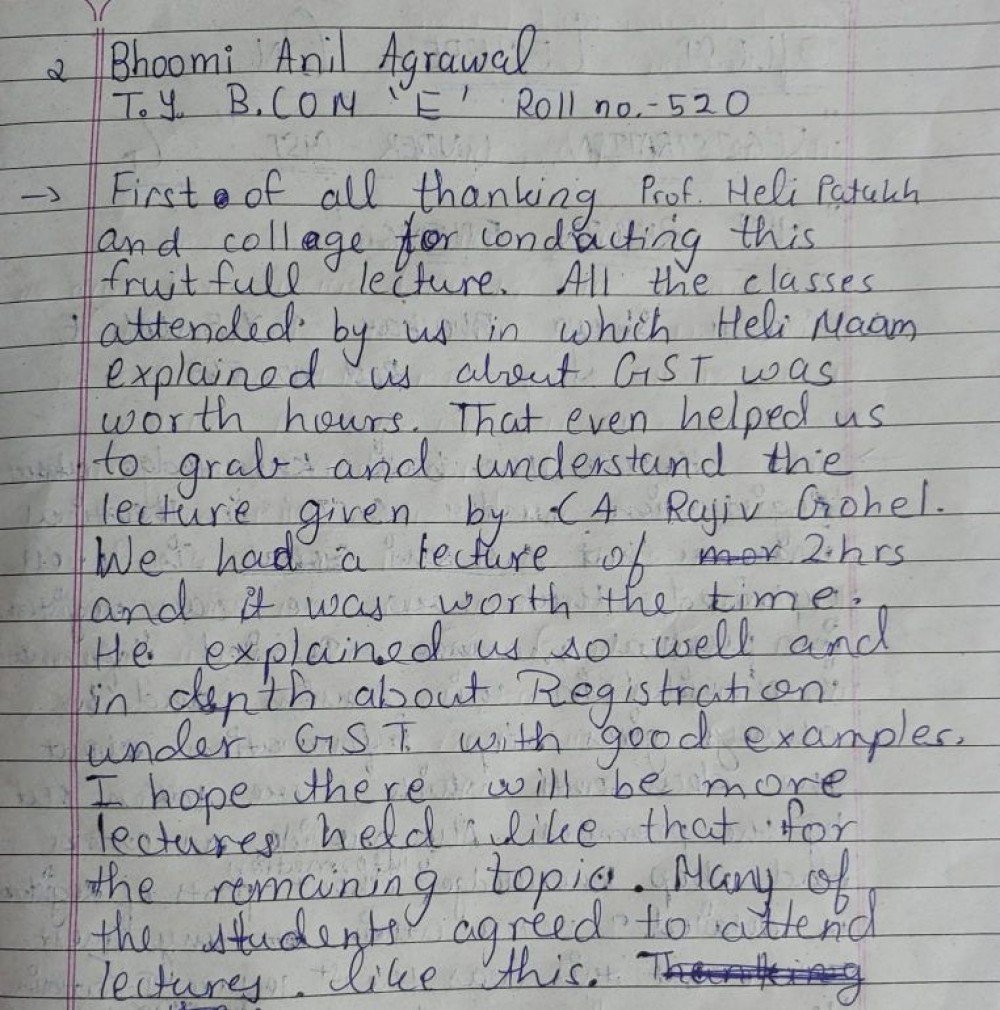 2 Bhoomi Anil Agrawal
T.Y. B.COM 'E' Roll no.-520
→ First of all thanking Prof. Heli Patukh
and collage for conducting this
fruitfull lecture. All the classes
attended by us in which Heli Maam
explained us about GST was
worth hours. That even helped us
to grab and understand the
lecture given by CA Rajiv Grohel.
We had a lecture of mor 2 hrs
and it was worth the time.
He explained us so well and
in depth about Registration
under GST with good examples.
I hope there will be more
lectures held like that for
the remaining topic. Many of
the students agreed to attend
lectures like this. Thanking